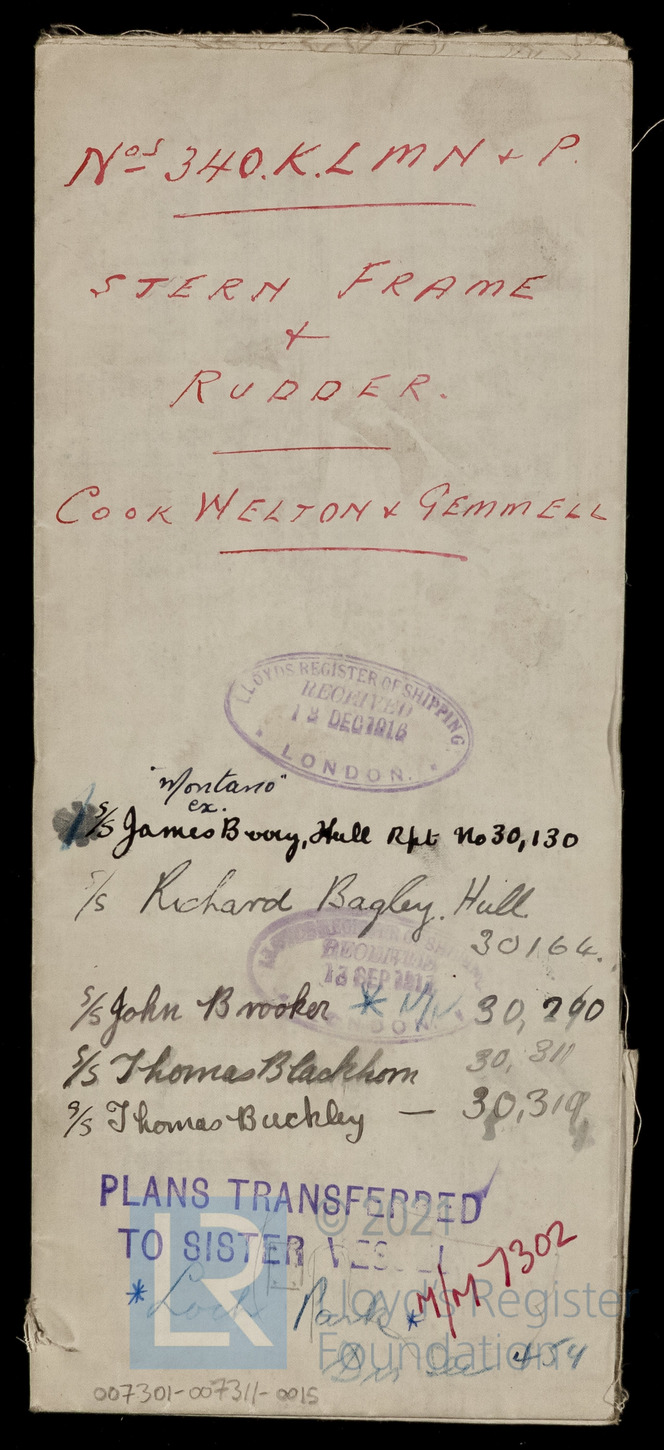 Nos 340.K.L M N + P.
STERN FRAME
+
RUDDER.
COOK WELTON & GEMMELL
LLOYDS REGISTER OF SHIPPING
RECEIVED
13 DEC 1916
LONDON.
"Montano"
ex.
S/S James B Hull Rpt No 30,130
S/S Richard Bagley. Hull
30164.
RECEIVED
13 SEP
LONDON
S/S John Brooker * 30,290
S/S Thomas Blackhorn 30,311
S/S Thomas Buckley — 30,319
PLANS TRANSFERRED
TO SISTER VESSEL
* Loch Park * M/M 7302
454
LR © 2021
Lloyd's Register
Foundation
007301-007311-0015